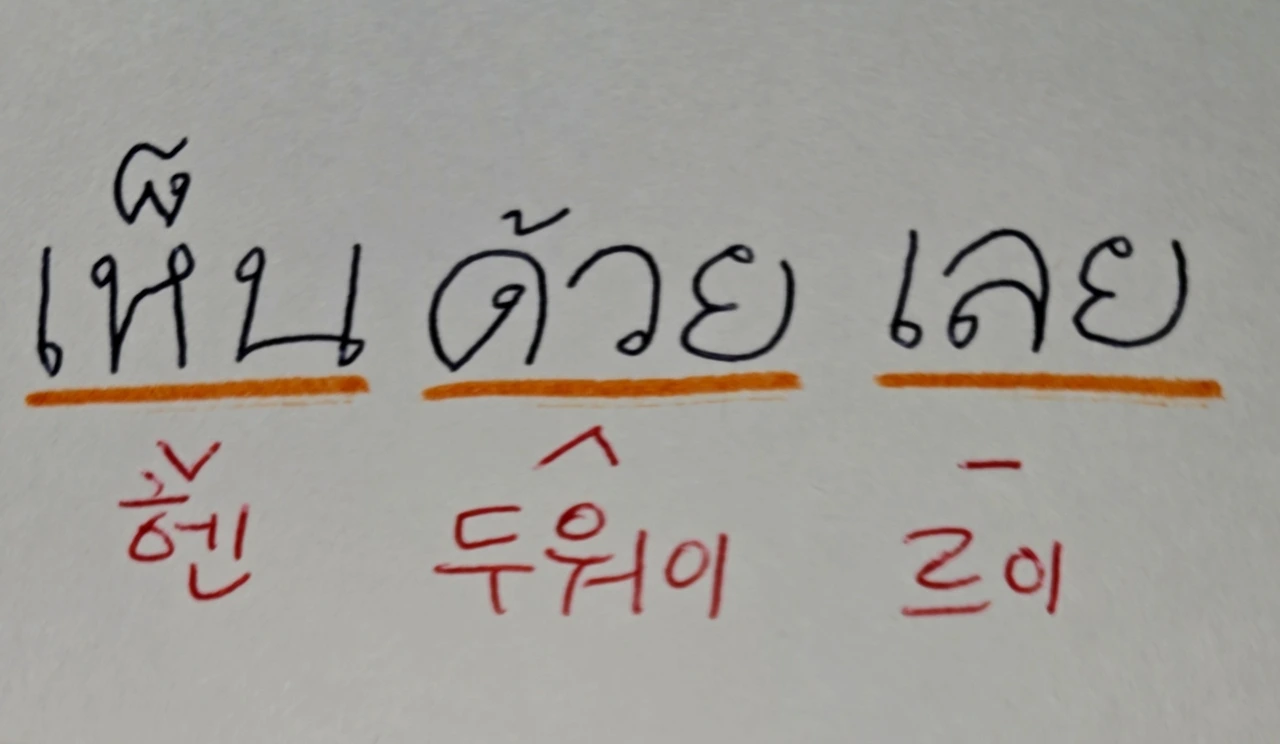 เห็น ด้วย เลย
헨 두워이 르이